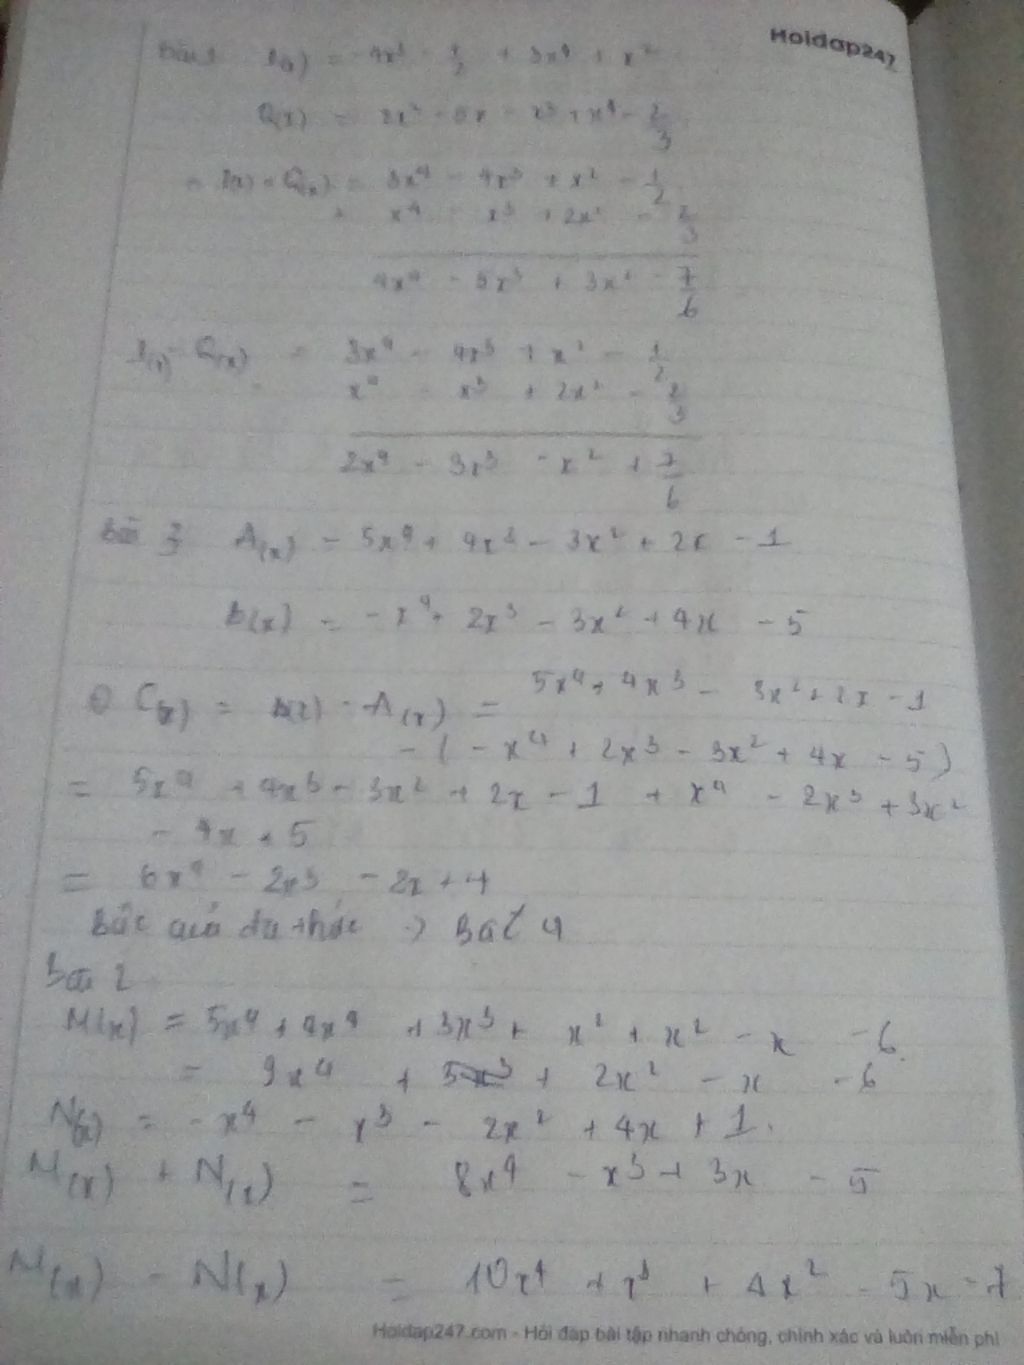 Hoidap247
Bài 1 P(x) = -4x³ - 1/2 + 3x⁴ + x²
Q(x) = 2x² - 5x - x³ + x⁴ - 2/3
P(x) + Q(x) = 3x⁴ - 4x³ + x² - 1/2
+ x⁴ - x³ + 2x² - 2/3
4x⁴ - 5x³ + 3x² - 7/6
P(x) - Q(x) = 3x⁴ - 4x³ + x² - 1/2
x⁴ - x³ + 2x² - 2/3
2x⁴ - 3x³ - x² + 7/6
Bài 3 A(x) = 5x⁴ + 4x³ - 3x² + 2x - 1
B(x) = -x⁴ + 2x³ - 3x² + 4x - 5
C(x) = - A(x) = 5x⁴ + 4x³ - 3x² + 2x - 1
- ( - x⁴ + 2x³ - 3x² + 4x - 5 )
= 5x⁴ + 4x³ - 3x² + 2x - 1 + x⁴ - 2x³ + 3x²
- 4x + 5
= 6x⁴ - 2x³ - 2x + 4
Bậc của đa thức → Bậc 4
Bài 2
M(x) = 5x⁴ + 4x⁴ + 3x³ + x² + x² - x - 6
= 9x⁴ + + 2x² - x - 6
N(x) = - x⁴ - x³ - 2x² + 4x + 1.
M(x) + N(x) = 8x⁴ - x³ + 3x - 5
M(x) - N(x) = 10x⁴ + x³ + 4x² - 5x - 7
Hoidap247.com - Hỏi đáp bài tập nhanh chóng, chính xác và luôn miễn phí